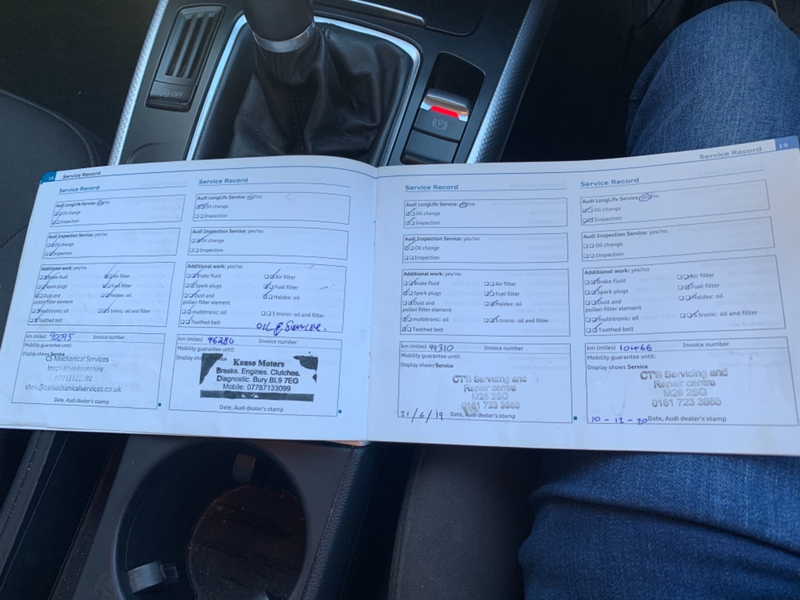 18 Service Record
Service Record
Audi LongLife Service: yes/no
Oil change
Inspection
Audi Inspection Service: yes/no
Oil change
Inspection
Additional work: yes/no
Brake fluid
Air filter
Spark plugs
Fuel filter
Dust and
pollen filter element
Haldex: oil
multitronic: oil
S tronic: oil and filter
Toothed belt
km (miles)
Invoice number
Mobility guarantee until:
Display shows Service
CS Mechanical Services
chris@csmechanicalservices.co.uk
Date, Audi dealer's stamp
Service Record
Audi LongLife Service: yes/no
Oil change
Inspection
Audi Inspection Service: yes/no
Oil change
Inspection
Additional work: yes/no
Brake fluid
Air filter
Spark plugs
Fuel filter
Dust and
pollen filter element
Haldex: oil
multitronic: oil
S tronic: oil and filter
Toothed belt
OIL & Service.
km (miles) 96280
Invoice number
Mobility guarantee until:
Kasso Motors
Breaks. Engines. Clutches.
Diagnostic. Bury BL9 7EG
Mobile: 07787133099
Date, Audi dealer's stamp
Service Record
Audi LongLife Service: yes/no
Oil change
Inspection
Audi Inspection Service: yes/no
Oil change
Inspection
Additional work: yes/no
Brake fluid
Air filter
Spark plugs
Fuel filter
Dust and
pollen filter element
Haldex: oil
multitronic: oil
S tronic: oil and filter
Toothed belt
km (miles) 99310
Invoice number
Mobility guarantee until:
Display shows Service
CTS Servicing and
Repair centre
M26 2SG
0161 723 3955
21/6/19 Date, Audi dealer's stamp
Service Record 19
Service Record
Audi LongLife Service: yes/no
Oil change
Inspection
Audi Inspection Service: yes/no
Oil change
Inspection
Additional work: yes/no
Brake fluid
Air filter
Spark plugs
Fuel filter
Dust and
pollen filter element
Haldex: oil
multitronic: oil
S tronic: oil and filter
Toothed belt
km (miles) 10466
Invoice number
Mobility guarantee until:
Display shows Service
CTS Servicing and
Repair centre
M26 2SG
0161 723 3955
10-12-20 Date, Audi dealer's stamp